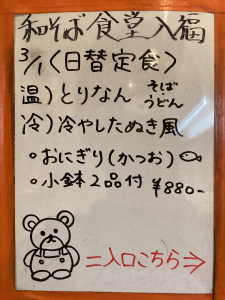 和そば食堂入福
3/1〈日替定食〉
温)とりなん そば うどん
冷)冷やしたぬき風
。おにぎり(かつお)
。小鉢2品付 ¥880-
=入口こちら⇒